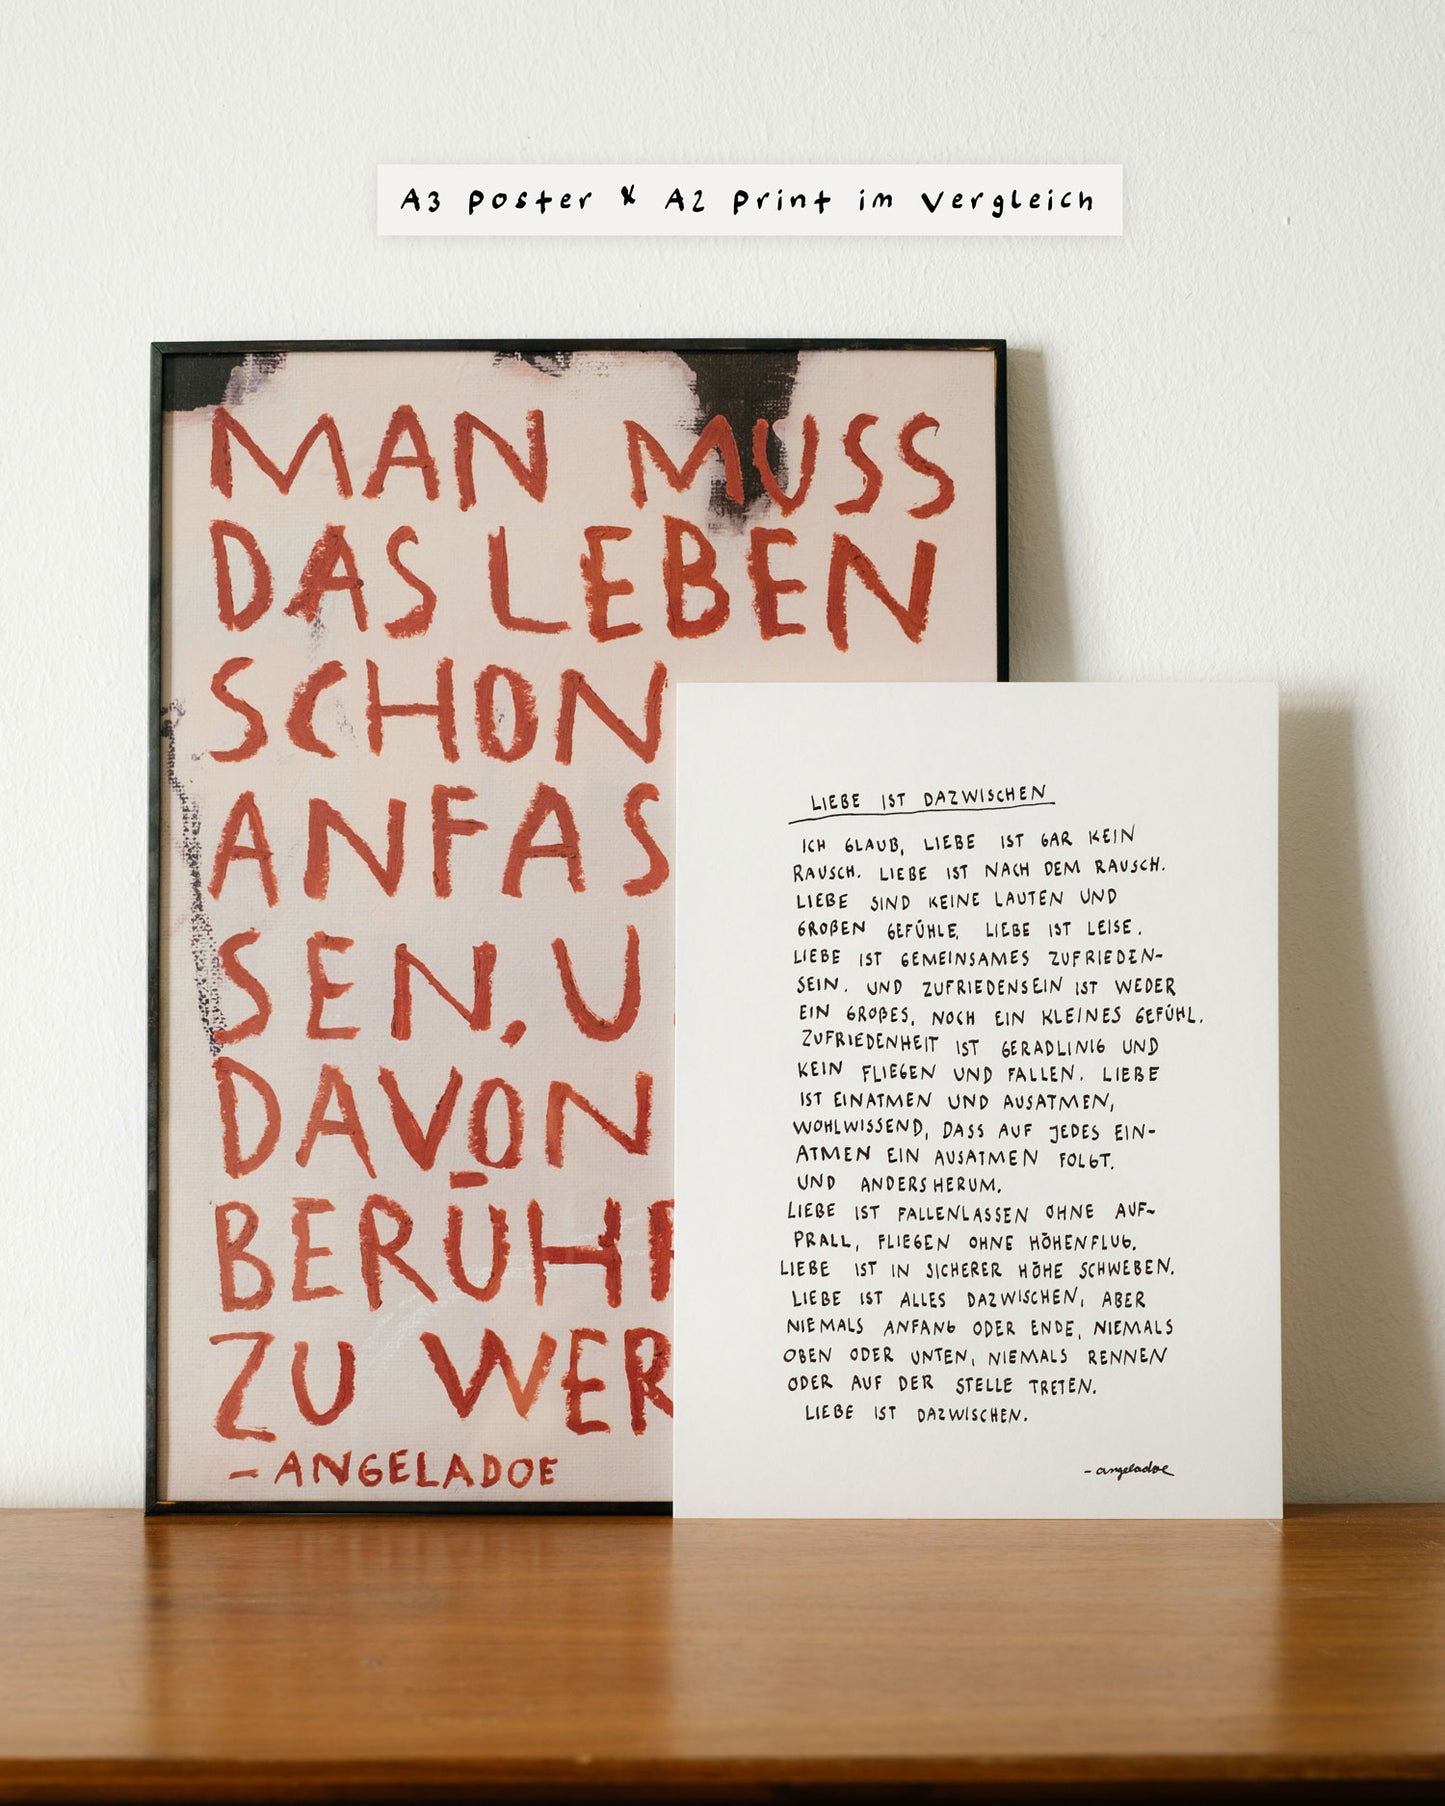 A3 poster & A2 print im Vergleich
MAN MUSS
DAS LEBEN
SCHON
ANFAS
SEN, U
DAVON
BERÜH
ZU WER
- ANGELADOE
LIEBE IST DAZWISCHEN
ICH GLAUB, LIEBE IST GAR KEIN
RAUSCH. LIEBE IST NACH DEM RAUSCH.
LIEBE SIND KEINE LAUTEN UND
GROßEN GEFÜHLE. LIEBE IST LEISE.
LIEBE IST GEMEINSAMES ZUFRIEDEN-
SEIN. UND ZUFRIEDENSEIN IST WEDER
EIN GROßES, NOCH EIN KLEINES GEFÜHL.
ZUFRIEDENHEIT IST GERADLINIG UND
KEIN FLIEGEN UND FALLEN. LIEBE
IST EINATMEN UND AUSATMEN,
WOHLWISSEND, DASS AUF JEDES EIN-
ATMEN EIN AUSATMEN FOLGT.
UND ANDERSHERUM.
LIEBE IST FALLENLASSEN OHNE AUF-
PRALL, FLIEGEN OHNE HÖHENFLUG.
LIEBE IST IN SICHERER HÖHE SCHWEBEN.
LIEBE IST ALLES DAZWISCHEN, ABER
NIEMALS ANFANG ODER ENDE, NIEMALS
OBEN ODER UNTEN, NIEMALS RENNEN
ODER AUF DER STELLE TRETEN.
LIEBE IST DAZWISCHEN.
- angeladoe